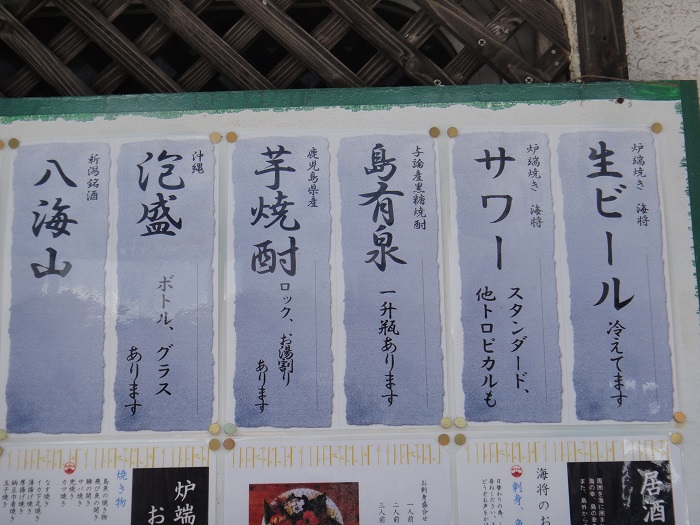 炉端焼き 海将
生ビール
冷えてます
炉端焼き 海将
サワー
スタンダード、
他トロピカルも
与論産黒糖焼酎
島有泉
一升瓶あります
鹿児島県産
芋焼酎
ロック、お湯割り
あります
沖縄
泡盛
ボトル、グラス
あります
新潟銘酒
八海山
居酒
海将のお
刺身、魚
お刺身盛合せ
一人前
二人前
三人前
炉端
お
焼き物